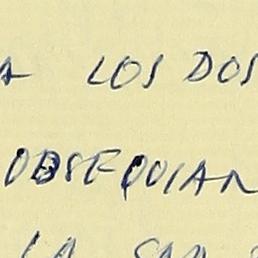 A LOS DOS
OBSEQUIAN
LA